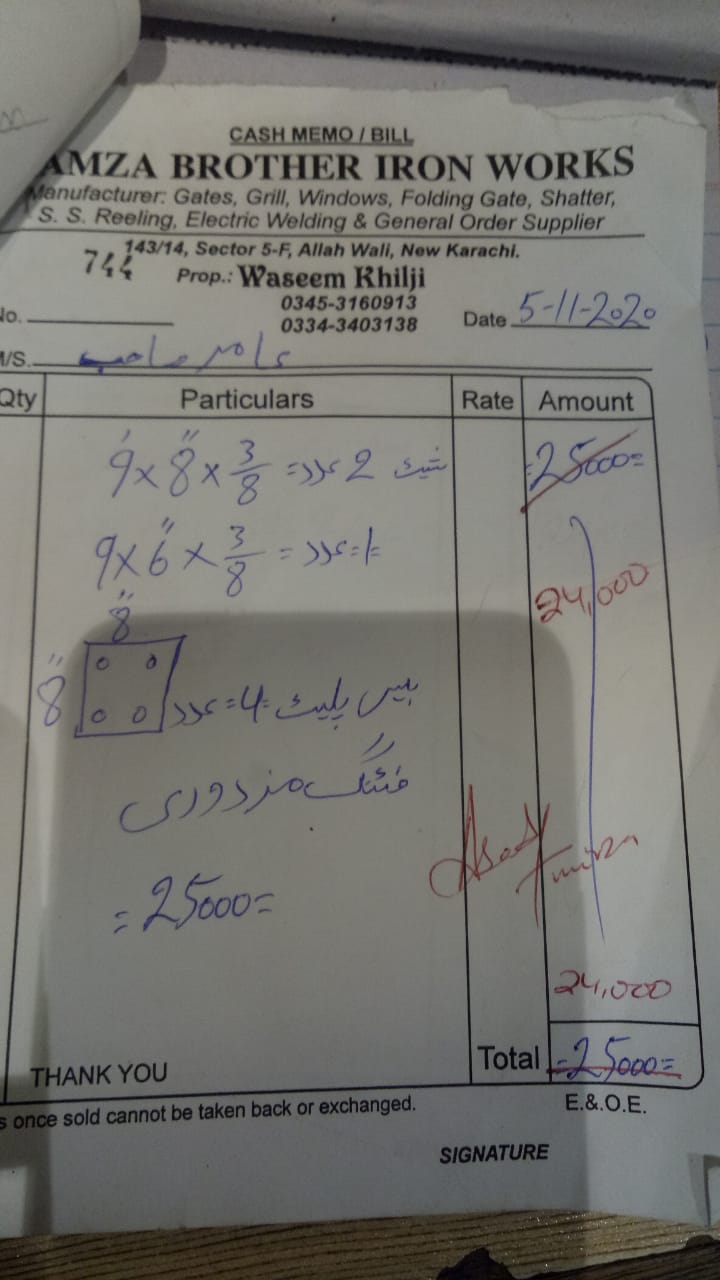 CASH MEMO / BILL
AMZA BROTHER IRON WORKS
Manufacturer: Gates, Grill, Windows, Folding Gate, Shatter,
S. S. Reeling, Electric Welding & General Order Supplier
143/14, Sector 5-F, Allah Wali, New Karachi.
744
Prop.: Waseem Khilji
0345-3160913
No.
0334-3403138
Date 5-11-2020
M/S. عامر صاحب
Qty Particulars Rate Amount
9' x 8" x 3/8 = عدد 2 شیٹ =25000=
9 x 6" x 3/8 = عدد = 1
24,000
8"
8" بیس پلیٹ = 4 = عدد
فٹنگ مزدوری
Asad
=25000=
24,000
Total =25000=
THANK YOU
s once sold cannot be taken back or exchanged.
E.&.O.E.
SIGNATURE